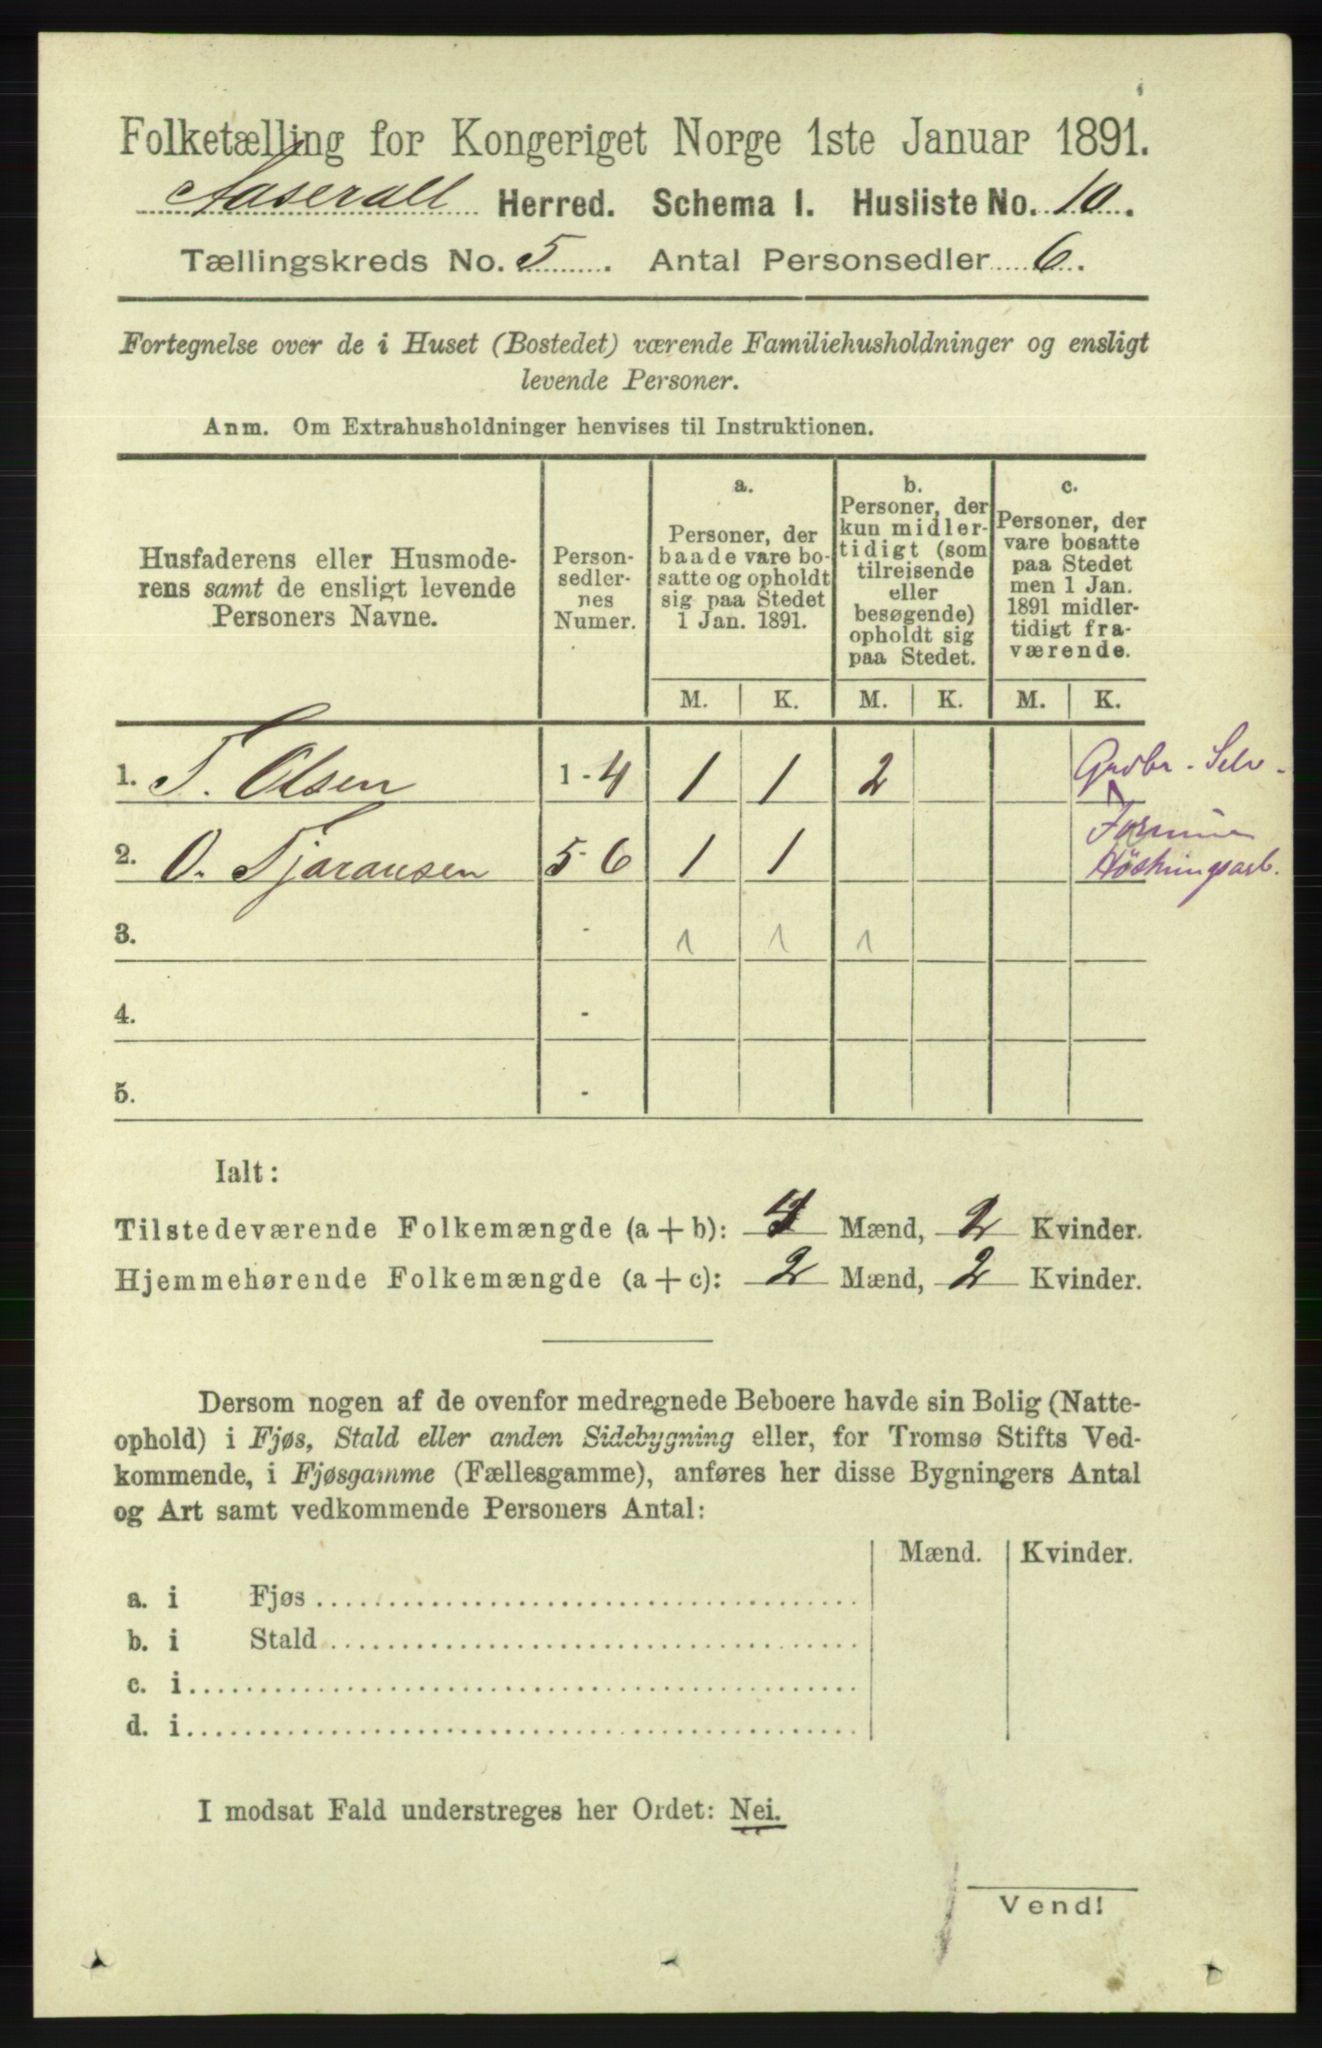 Folketælling for Kongeriget Norge 1ste Januar 1891.
Aaserall Herred. Schema I. Husliste No. 10.
Tællingskreds No. 5. Antal Personsedler 6.
Fortegnelse over de i Huset (Bostedet) værende Familiehusholdninger og ensligt
levende Personer.
Anm. Om Extrahusholdninger henvises til Instruktionen.
Husfaderens eller Husmode-
rens samt de ensligt levende
Personers Navne.
Person-
sedler-
nes
Numer.
a.
Personer, der
baade vare bo-
satte og opholdt
sig paa Stedet
1 Jan. 1891.
b.
Personer, der
kun midler-
tidigt (som
tilreisende
eller
besøgende)
opholdt sig
paa Stedet.
c.
Personer, der
vare bosatte
paa Stedet
men 1 Jan.
1891 midler-
tidigt fra-
værende.
M. K. M. K. M. K.
1. T. Olsen 1-4 1 1 2 Gadbr - Selv -
2. O. Tjøransen 5-6 1 1
3. - 1 1 1
4. -
5. -
Ialt:
Tilstedeværende Folkemængde (a + b): 4 Mænd, 2 Kvinder.
Hjemmehørende Folkemængde (a + c): 2 Mænd, 2 Kvinder.
Dersom nogen af de ovenfor medregnede Beboere havde sin Bolig (Natte-
ophold) i Fjøs, Stald eller anden Sidebygning eller, for Tromsø Stifts Ved-
kommende, i Fjøsgamme (Fællesgamme), anføres her disse Bygningers Antal
og Art samt vedkommende Personers Antal:
Mænd. Kvinder.
a. i Fjøs
b. i Stald
c. i
d. i
I modsat Fald understreges her Ordet: Nei.
Vend!